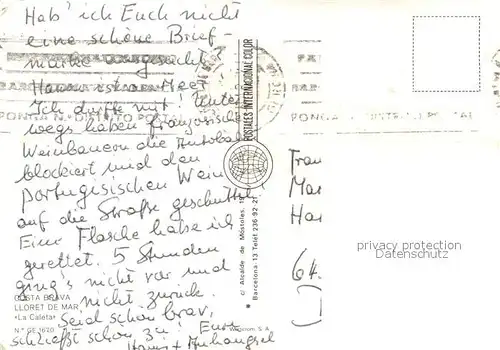 Hab' ich Euch nicht
eine schöne Brief-
marke ausgesucht?
Hanni ist am Meer
Ich durfte mit! Unter
wegs haben französische
Weinbauern die Autobahn
blockiert und den
portugisischen Wein
auf die Straße geschüttet
Eine Flasche habe ich
gerettet. 5 Stunden
ging's nicht vor und
nicht zurück.
Seid schön brav,
schließt schön zu! Eure
Hanni + Anhängsel
PONGA N.º DISTRITO POSTAL
PONGA
COSTA BRAVA
LLORET DE MAR
«La Caleta»
N.º GE 1670
POSTALES INTERNACIONAL COLOR
c/ Alcalde de Móstoles,
Barcelona-13 Teléf. 236-92-2
S. A.
64.
privacy protection
Datenschutz